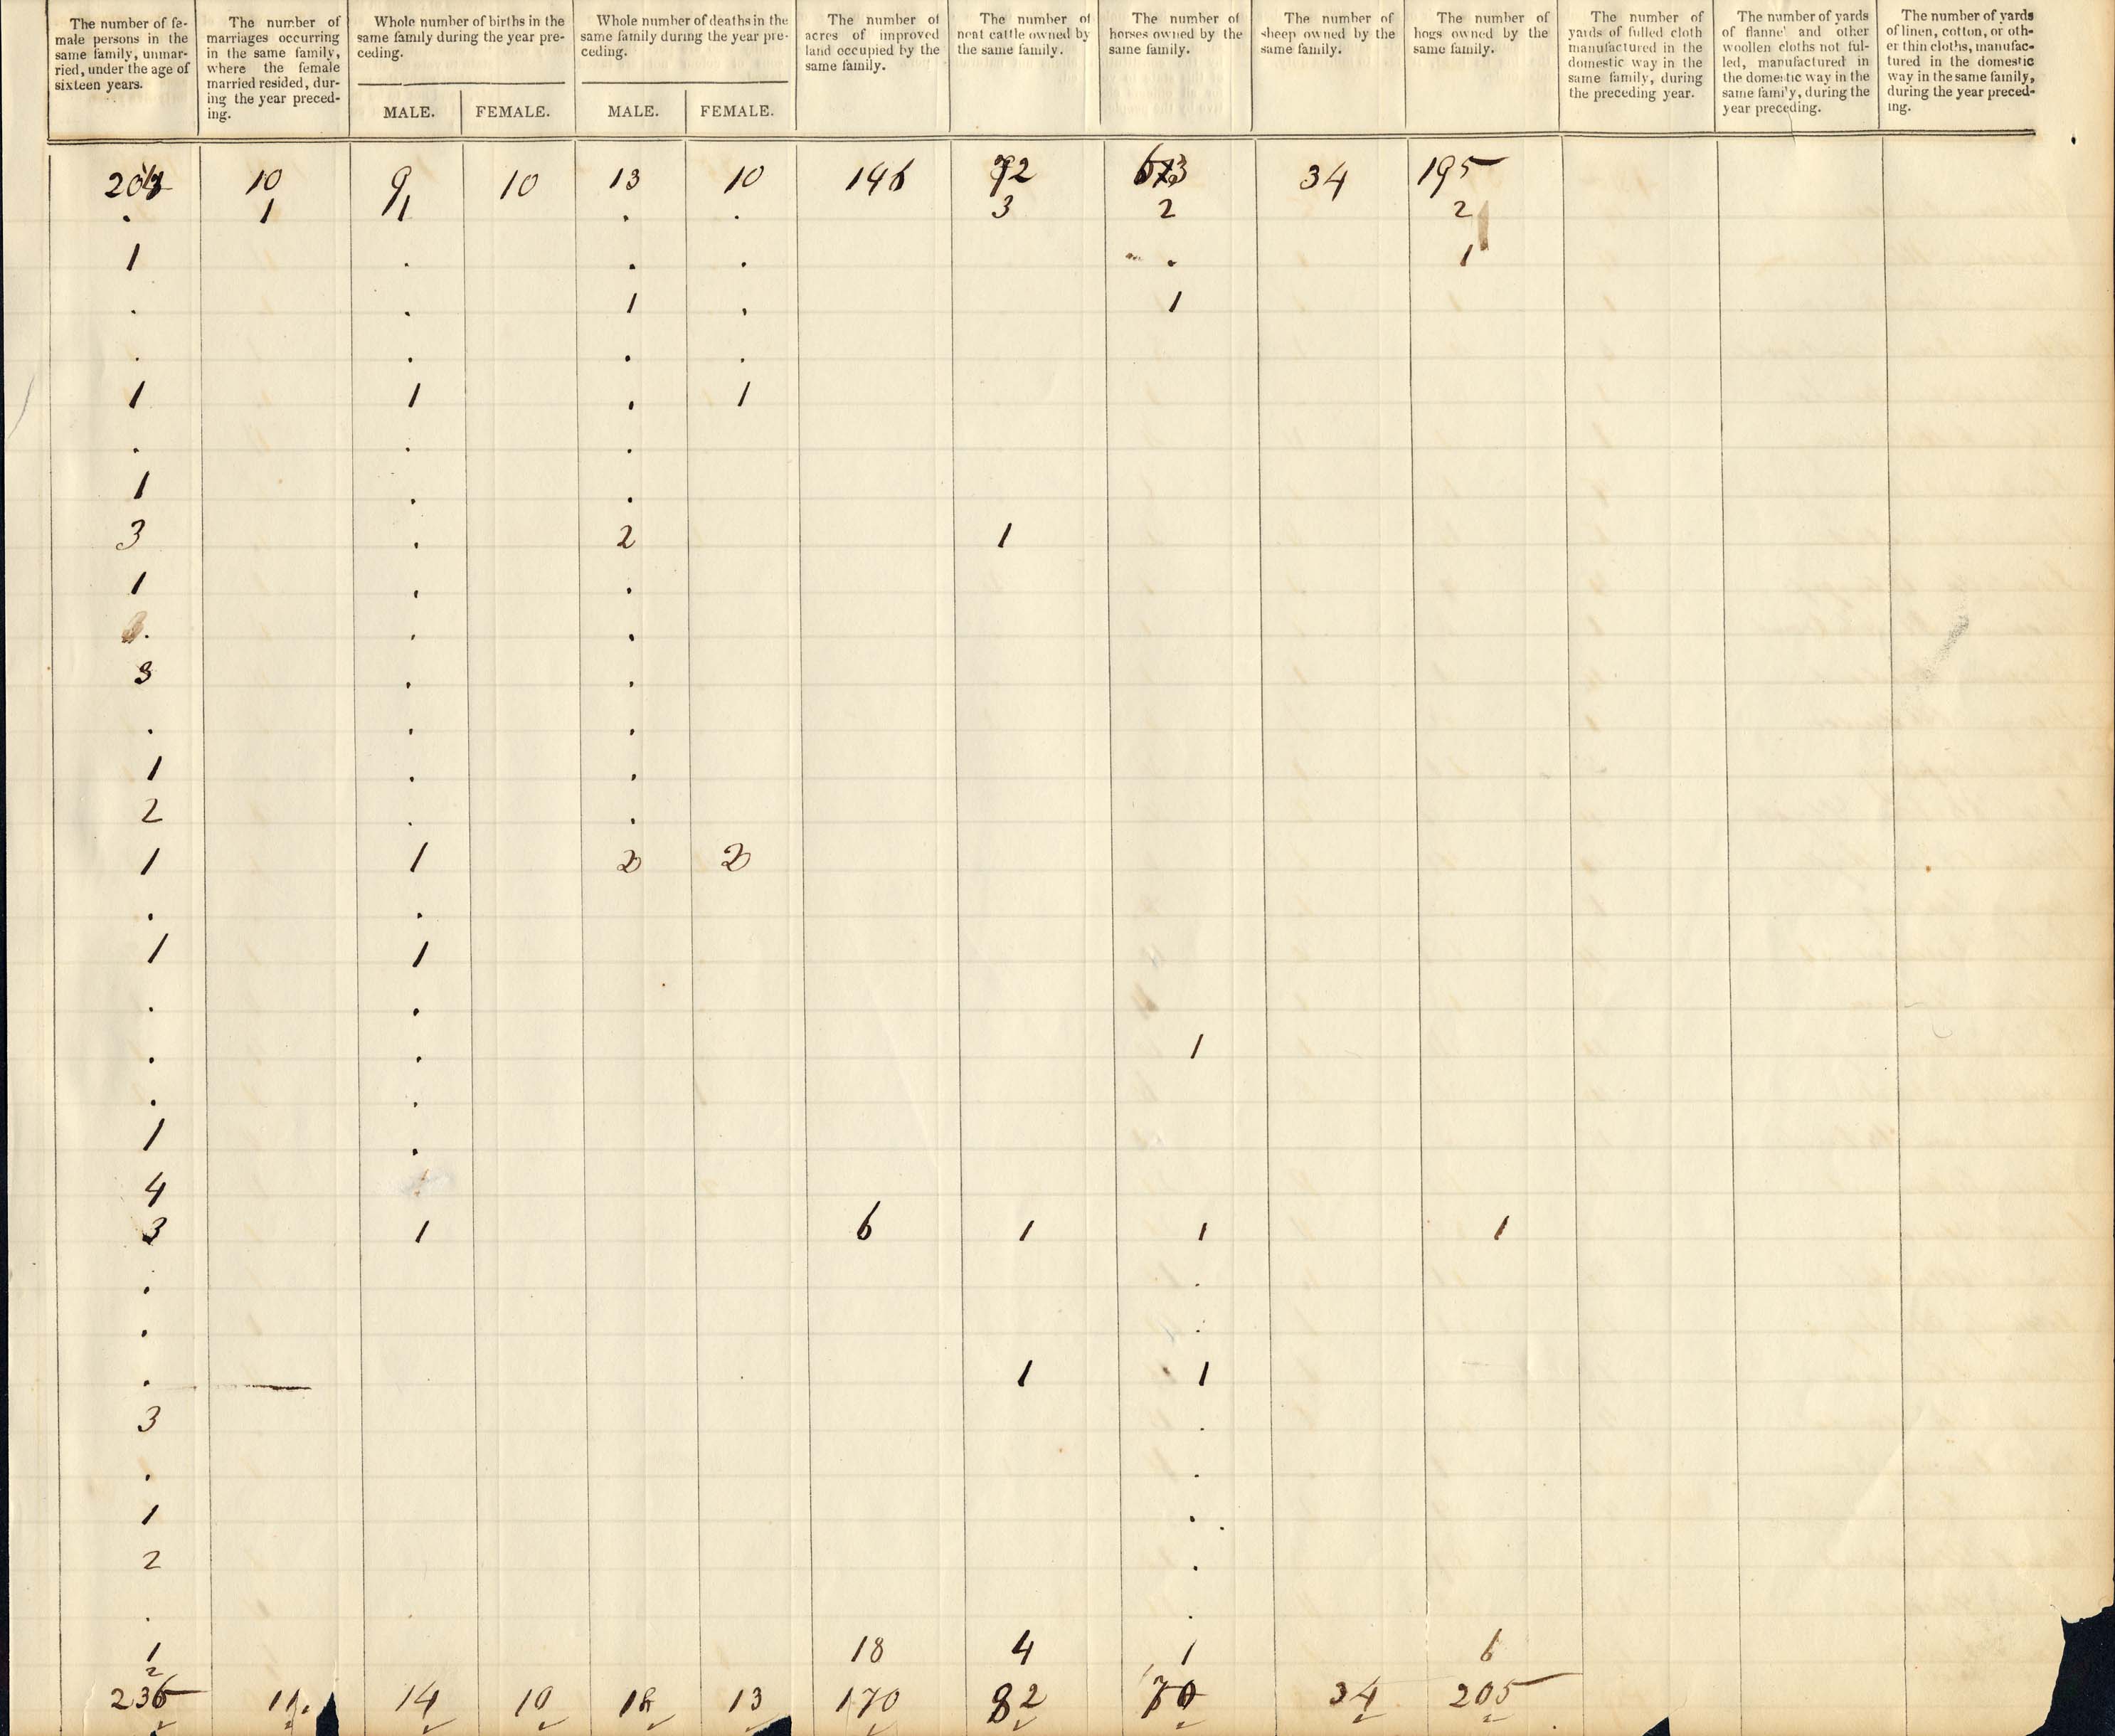 The number of fe-
male persons in the
same family, unmar-
ried, under the age of
sixteen years.
The number of
marriages occurring
in the same family,
where the female
married resided, dur-
ing the year preced-
ing.
Whole number of births in the
same family during the year pre-
ceding.
MALE. FEMALE.
Whole number of deaths in the
same family during the year pre-
ceding.
MALE. FEMALE.
The number of
acres of improved
land occupied by the
same family.
The number of
neat cattle owned by
the same family.
The number of
horses owned by the
same family.
The number of
sheep owned by the
same family.
The number of
hogs owned by the
same family.
The number of
yards of fulled cloth
manufactured in the
domestic way in the
same family, during
the preceding year.
The number of yards
of flannel and other
woollen cloths not ful-
led, manufactured in
the domestic way in the
same family, during the
year preceding.
The number of yards
of linen, cotton, or oth-
er thin cloths, manufac-
tured in the domestic
way in the same family,
during the year preced-
ing.
10 9 10 13 10 146 34 195
. 1 1 . . 3 2 2
1 . . . . 1
. . 1 . 1
. . . .
1 1 . 1
. . .
1 . .
3 . 2 1
1 . .
. . .
3 . .
. . .
1 . .
2 . .
1 1 2 2
. .
1 1
. .
. . 1
. .
1 .
4
3 1 6 1 1 1
. .
. .
. 1 1
3 .
. .
1 .
2 .
. .
1 18 4 1 6
2
236 11. 14 10 18 13 170 82 70 34 205